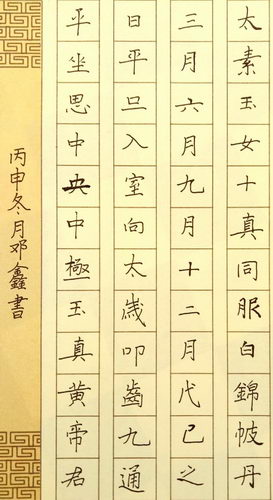 太素玉女十真同服白錦帔丹
三月六月九月十二月代己之
日平旦入室向太歲叩齒九通
平坐思中央中極玉真黄帝君
丙申冬月邓鑫書